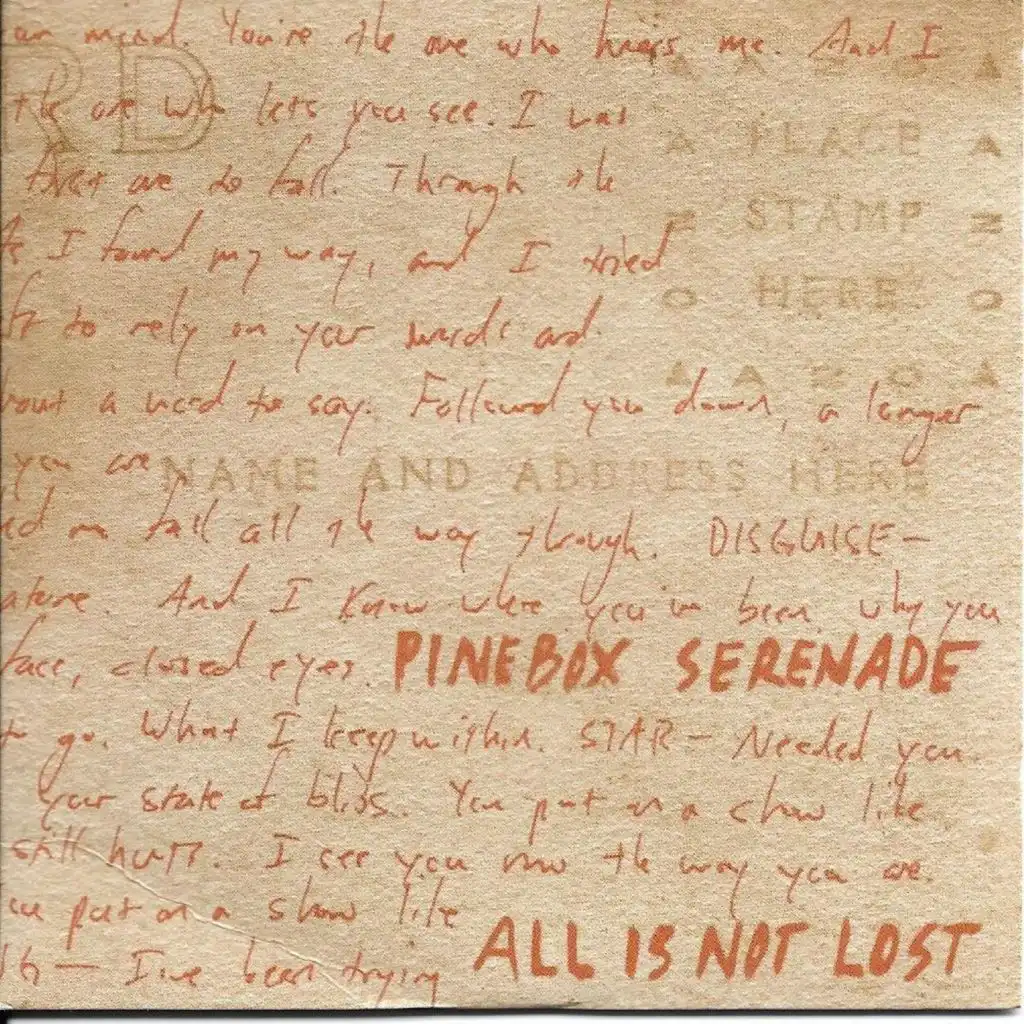 mind. You're the one who hears me. And I
RD
the one who lets you see. I was
PLACE
are to fall. Through the
STAMP
I found my way, and I tried
HERE
to rely on your words and
a word to say. Followed you down, a longer
you are
NAME AND ADDRESS HERE
fall all the way through. DISGUISE —
And I know where you've been, why you
face, closed eyes.
PINEBOX SERENADE
go. What I keep within. STAR — Needed you
your state of bliss. You put on a show like
still hurts. I see you now the way you are.
put on a show like
— I've been trying
ALL IS NOT LOST